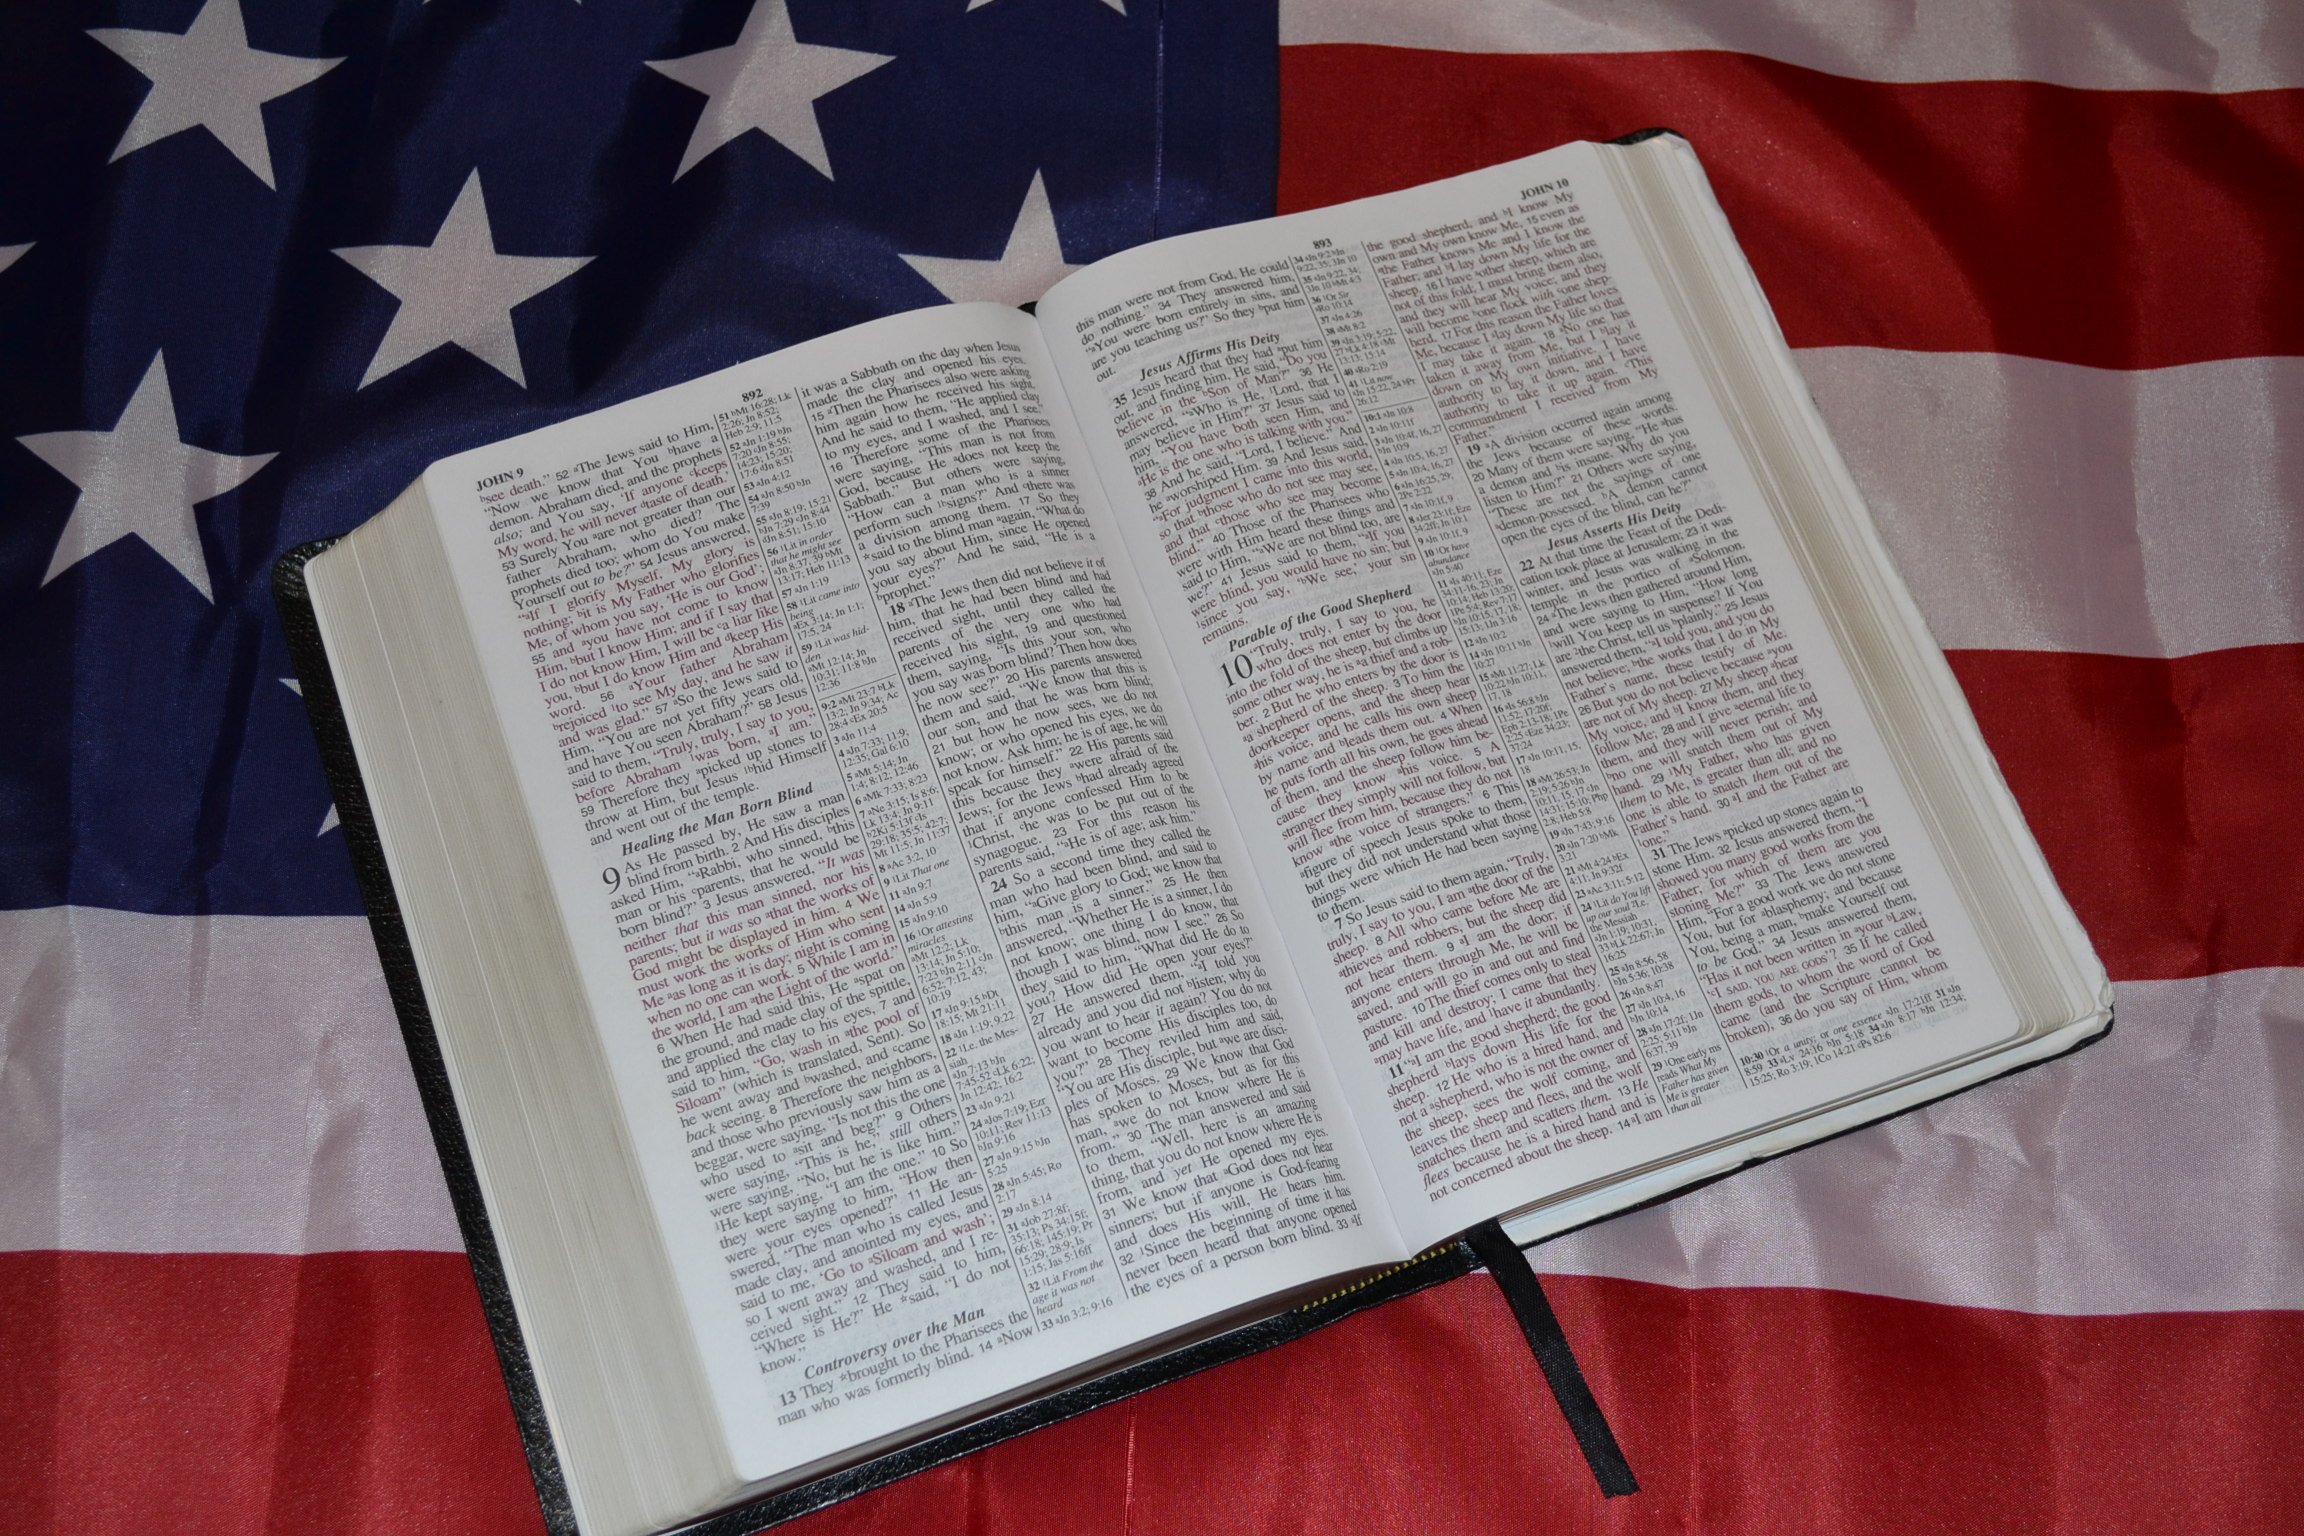 JOHN 9
892
bsee death." 52 aThe Jews said to Him,
"Now we know that You bhave a
demon. Abraham died, and the prophets
also; and You say, 'If anyone ckeeps
My word, he will never dtaste of death.'
53 Surely You aare not greater than our
father Abraham, who died? The
prophets died too; whom do You make
Yourself out to be?" 54 Jesus answered,
"aIf I glorify Myself, My glory is
nothing; bit is My Father who glorifies
Me, of whom you say, 'He is our God';
55 and ayou have not come to know
Him, bbut I know Him; and if I say that
I do not know Him, I will be ca liar like
you, bbut I do know Him and dkeep His
word. 56 aYour father Abraham
brejoiced 1to see My day, and he saw it
and was glad." 57 aSo the Jews said to
Him, "You are not yet fifty years old,
and have You seen Abraham?" 58 Jesus
said to them, "Truly, truly, I say to you,
before Abraham 1was born, aI am."
59 Therefore they apicked up stones to
throw at Him, but Jesus 1bhid Himself
and went out of the temple.
Healing the Man Born Blind
9 As He passed by, He saw a man
blind from birth. 2 And His disciples
asked Him, "aRabbi, who sinned, bthis
man or his cparents, that he would be
born blind?" 3 Jesus answered, "It was
neither that this man sinned, nor his
parents; but it was so athat the works of
God might be displayed in him. 4 We
must work the works of Him who sent
Me aas long as it is day; night is coming
when no one can work. 5 While I am in
the world, I am athe Light of the world."
6 When He had said this, He aspat on
the ground, and made clay of the spittle,
and applied the clay to his eyes, 7 and
said to him, "Go, wash in athe pool of
Siloam" (which is translated, Sent). So
he went away and bwashed, and ccame
back seeing. 8 Therefore the neighbors,
and those who previously saw him as a
beggar, were saying, "Is not this the one
who used to asit and beg?" 9 Others
were saying, "This is he," still others
were saying, "No, but he is like him."
1He kept saying, "I am the one." 10 So
they were saying to him, "How then
were your eyes opened?" 11 He an-
swered, "The man who is called Jesus
made clay, and anointed my eyes, and
said to me, 'Go to aSiloam and wash';
so I went away and washed, and I re-
ceived sight." 12 They said to him,
"Where is He?" He *said, "I do not
know."
Controversy over the Man
13 They *brought to the Pharisees the
man who was formerly blind. 14 aNow
51 bMt 16:28; Lk
2:26; Jn 8:52;
Heb 2:9; 11:5
52 aJn 1:19 bJn
7:20 cJn 8:55;
14:23; 15:20;
17:6 dJn 8:51
53 aJn 4:12
54 aJn 8:50 bJn
7:39
55 aJn 8:19; 15:21
bJn 7:29 cJn 8:44
dJn 8:51; 15:10
56 1Lit in order
that he might see
aJn 8:37, 39 bMt
13:17; Heb 11:13
57 aJn 1:19
58 1Lit came into
being
aEx 3:14; Jn 1:1;
17:5, 24
59 1Lit was hid-
den
aMt 12:14; Jn
10:31; 11:8 bJn
12:36
9:2 aMt 23:7 bLk
13:2; Jn 9:34; Ac
28:4 cEx 20:5
3 aJn 11:4
4 aJn 7:33; 11:9;
12:35; Gal 6:10
5 aMt 5:14; Jn
1:4; 8:12; 12:46
6 aMk 7:33; 8:23
7 aNe 3:15; Is 8:6;
Lk 13:4; Jn 9:11
b2Ki 5:13f cIs
29:18; 35:5; 42:7;
Mt 11:5; Jn 11:37
8 aAc 3:2, 10
9 1Lit That one
11 aJn 9:7
14 aJn 5:9
15 aJn 9:10
16 1Or attesting
miracles
aMt 12:2; Lk
13:14; Jn 5:10;
7:23 bJn 2:11 cJn
6:52; 7:12, 43;
10:19
17 aJn 9:15 bDt
18:15; Mt 21:11
18 aJn 1:19; 9:22
22 1I.e. the Mes-
siah
aJn 7:13 bJn
7:45-52 cLk 6:22;
Jn 12:42; 16:2
23 aJn 9:21
24 aJos 7:19; Ezr
10:11; Rev 11:13
bJn 9:16
27 aJn 9:15 bJn
5:25
28 aJn 5:45; Ro
2:17
29 aJn 8:14
31 aJob 27:8f;
35:13; Ps 34:15f;
66:18; 145:19; Pr
15:29; 28:9; Is
1:15; Jas 5:16ff
32 1Lit From the
age it was not
heard
33 aJn 3:2; 9:16
it was a Sabbath on the day when Jesus
made the clay and opened his eyes.
15 aThen the Pharisees also were asking
him again how he received his sight.
And he said to them, "He applied clay
to my eyes, and I washed, and I see."
16 Therefore some of the Pharisees
were saying, "This man is not from
God, because He adoes not keep the
Sabbath." But others were saying,
"How can a man who is a sinner
perform such 1bsigns?" And cthere was
a division among them. 17 So they
*said to the blind man aagain, "What do
you say about Him, since He opened
your eyes?" And he said, "He is a
bprophet."
18 aThe Jews then did not believe it of
him, that he had been blind and had
received sight, until they called the
parents of the very one who had
received his sight, 19 and questioned
them, saying, "Is this your son, who
you say was born blind? Then how does
he now see?" 20 His parents answered
them and said, "We know that this is
our son, and that he was born blind;
21 but how he now sees, we do not
know; or who opened his eyes, we do
not know. Ask him; he is of age, he will
speak for himself." 22 His parents said
this because they awere afraid of the
Jews; for the Jews bhad already agreed
that if anyone confessed Him to be
1Christ, che was to be put out of the
synagogue. 23 For this reason his
parents said, "aHe is of age; ask him."
24 So a second time they called the
man who had been blind, and said to
him, "aGive glory to God; we know that
bthis man is a sinner." 25 He then
answered, "Whether He is a sinner, I do
not know; one thing I do know, that
though I was blind, now I see." 26 So
they said to him, "What did He do to
you? How did He open your eyes?"
27 He answered them, "aI told you
already and you did not blisten; why do
you want to hear it again? You do not
want to become His disciples too, do
you?" 28 They reviled him and said,
"You are His disciple, but awe are disci-
ples of Moses. 29 We know that God
has spoken to Moses, but as for this
man, awe do not know where He is
from." 30 The man answered and said
to them, "Well, here is an amazing
thing, that you do not know where He is
from, and yet He opened my eyes.
31 We know that aGod does not hear
sinners; but if anyone is God-fearing
and does His will, He hears him.
32 1Since the beginning of time it has
never been heard that anyone opened
the eyes of a person born blind. 33 aIf
893
JOHN 10
this man were not from God, He could
do nothing." 34 They answered him,
"aYou were born entirely in sins, and
are you teaching us?" So they bput him
out.
Jesus Affirms His Deity
35 Jesus heard that they had aput him
out, and finding him, He said, "Do you
believe in the bSon of Man?" 36 He
answered, "aWho is He, 1Lord, that I
may believe in Him?" 37 Jesus said to
him, "You have both seen Him, and
aHe is the one who is talking with you."
38 And he said, "Lord, I believe." And
he aworshiped Him. 39 And Jesus said,
"aFor judgment I came into this world,
so that bthose who do not see may see,
and that cthose who see may become
blind." 40 Those of the Pharisees who
were with Him heard these things and
said to Him, "aWe are not blind too, are
we?" 41 Jesus said to them, "aIf you
were blind, you would have no sin; but
1since you say, 'bWe see,' your sin
remains.
Parable of the Good Shepherd
10 "Truly, truly, I say to you, he
who does not enter by the door
into the fold of the sheep, but climbs up
some other way, he is aa thief and a rob-
ber. 2 But he who enters by the door is
aa shepherd of the sheep. 3 To him the
doorkeeper opens, and the sheep hear
ahis voice, and he calls his own sheep
by name and bleads them out. 4 When
he puts forth all his own, he goes ahead
of them, and the sheep follow him be-
cause they know ahis voice. 5 A
stranger they simply will not follow, but
will flee from him, because they do not
know athe voice of strangers." 6 This
afigure of speech Jesus spoke to them,
but they did not understand what those
things were which He had been saying
to them.
7 So Jesus said to them again, "Truly,
truly, I say to you, I am athe door of the
sheep. 8 All who came before Me are
athieves and robbers, but the sheep did
not hear them. 9 aI am the door; if
anyone enters through Me, he will be
saved, and will go in and out and find
pasture. 10 The thief comes only to steal
and kill and destroy; I came that they
amay have life, and 1have it abundantly.
11 "aI am the good shepherd; the good
shepherd blays down His life for the
sheep. 12 He who is a hired hand, and
not a ashepherd, who is not the owner of
the sheep, sees the wolf coming, and
leaves the sheep and flees, and the wolf
snatches them and scatters them. 13 He
flees because he is a hired hand and is
not concerned about the sheep. 14 aI am
34 aJn 9:2 bJn
9:22, 35; 3Jn 10
35 aJn 9:22, 34;
3Jn 10 bMt 4:3
36 1Or Sir
aRo 10:14
37 aJn 4:26
38 aMt 8:2
39 aJn 3:19; 5:22,
27 bLk 4:18 cMt
13:13; 15:14
40 aRo 2:19
41 1Lit now
aJn 15:22, 24 bPr
26:12
10:1 aJn 10:8
2 aJn 10:11f
3 aJn 10:4f, 16, 27
bJn 10:9
4 aJn 10:5, 16, 27
5 aJn 10:4, 16, 27
6 aJn 16:25, 29;
2Pe 2:22
7 aJn 10:1f, 9
8 aJer 23:1f; Eze
34:2ff; Jn 10:1
9 aJn 10:1f, 9
10 1Or have
abundance
aJn 5:40
11 aIs 40:11; Eze
34:11-16, 23; Jn
10:14; Heb 13:20;
1Pe 5:4; Rev 7:17
bJn 10:15, 17, 18;
15:13; 1Jn 3:16
12 aJn 10:2
14 aJn 10:11 bJn
10:27
15 aMt 11:27; Lk
10:22 bJn 10:11,
17, 18
16 aIs 56:8 bJn
11:52; 17:20f;
Eph 2:13-18; 1Pe
2:25 cEze 34:23;
37:24
17 aJn 10:11, 15,
18
18 aMt 26:53; Jn
2:19; 5:26 bJn
10:11, 15, 17 cJn
14:31; 15:10; Php
2:8; Heb 5:8
19 aJn 7:43; 9:16
20 aJn 7:20 bMk
3:21
21 aMt 4:24 bEx
4:11; Jn 9:32f
23 aAc 3:11; 5:12
24 1Lit do You lift
up our soul 2I.e.
the Messiah
aJn 1:19; 10:31,
33 bLk 22:67; Jn
16:25
25 aJn 8:56, 58
bJn 5:36; 10:38
26 aJn 8:47
27 aJn 10:4, 16
bJn 10:14
28 aJn 17:2f; 1Jn
2:25; 5:11 bJn
6:37, 39
29 1One early ms
reads What My
Father has given
Me is greater
than all
the good shepherd, and bI know My
own and My own know Me, 15 even as
athe Father knows Me and I know the
Father; and bI lay down My life for the
sheep. 16 I have aother sheep, which are
not of this fold; I must bring them also,
and they will hear My voice; and they
will become bone flock with cone shep-
herd. 17 For this reason the Father loves
Me, because I alay down My life so that
I may take it again. 18 aNo one has
taken it away from Me, but I blay it
down on My own initiative. I have
authority to lay it down, and I have
authority to take it up again. cThis
commandment I received from My
Father."
19 aA division occurred again among
the Jews because of these words.
20 Many of them were saying, "He ahas
a demon and bis insane. Why do you
listen to Him?" 21 Others were saying,
"These are not the sayings of one
ademon-possessed. bA demon cannot
open the eyes of the blind, can he?"
Jesus Asserts His Deity
22 At that time the Feast of the Dedi-
cation took place at Jerusalem; 23 it was
winter, and Jesus was walking in the
temple in the portico of aSolomon.
24 aThe Jews then gathered around Him,
and were saying to Him, "How long
1will You keep us in suspense? If You
are 2the Christ, tell us bplainly." 25 Jesus
answered them, "aI told you, and you do
not believe; bthe works that I do in My
Father's name, these testify of Me.
26 But you do not believe because ayou
are not of My sheep. 27 My sheep ahear
My voice, and bI know them, and they
follow Me; 28 and I give aeternal life to
them, and they will never perish; and
bno one will snatch them out of My
hand. 29 1My Father, who has given
them to Me, is greater than all; and no
one is able to snatch them out of the
Father's hand. 30 aI and the Father are
1one."
31 The Jews apicked up stones again to
stone Him. 32 Jesus answered them, "I
showed you many good works from the
Father; for which of them are you
stoning Me?" 33 The Jews answered
Him, "For a good work we do not stone
You, but for ablasphemy; and because
You, being a man, bmake Yourself out
to be God." 34 Jesus answered them,
"Has it not been written in ayour bLaw,
'cI SAID, YOU ARE GODS'? 35 If he called
them gods, to whom the word of God
came (and the Scripture cannot be
broken), 36 do you say of Him, whom
10:30 1Or a unity; or one essence aJn 17:21ff 31 aJn
8:59 33 aLv 24:16 bJn 5:18 34 aJn 8:17 bJn 12:34;
15:25; Ro 3:19; 1Co 14:21 cPs 82:6